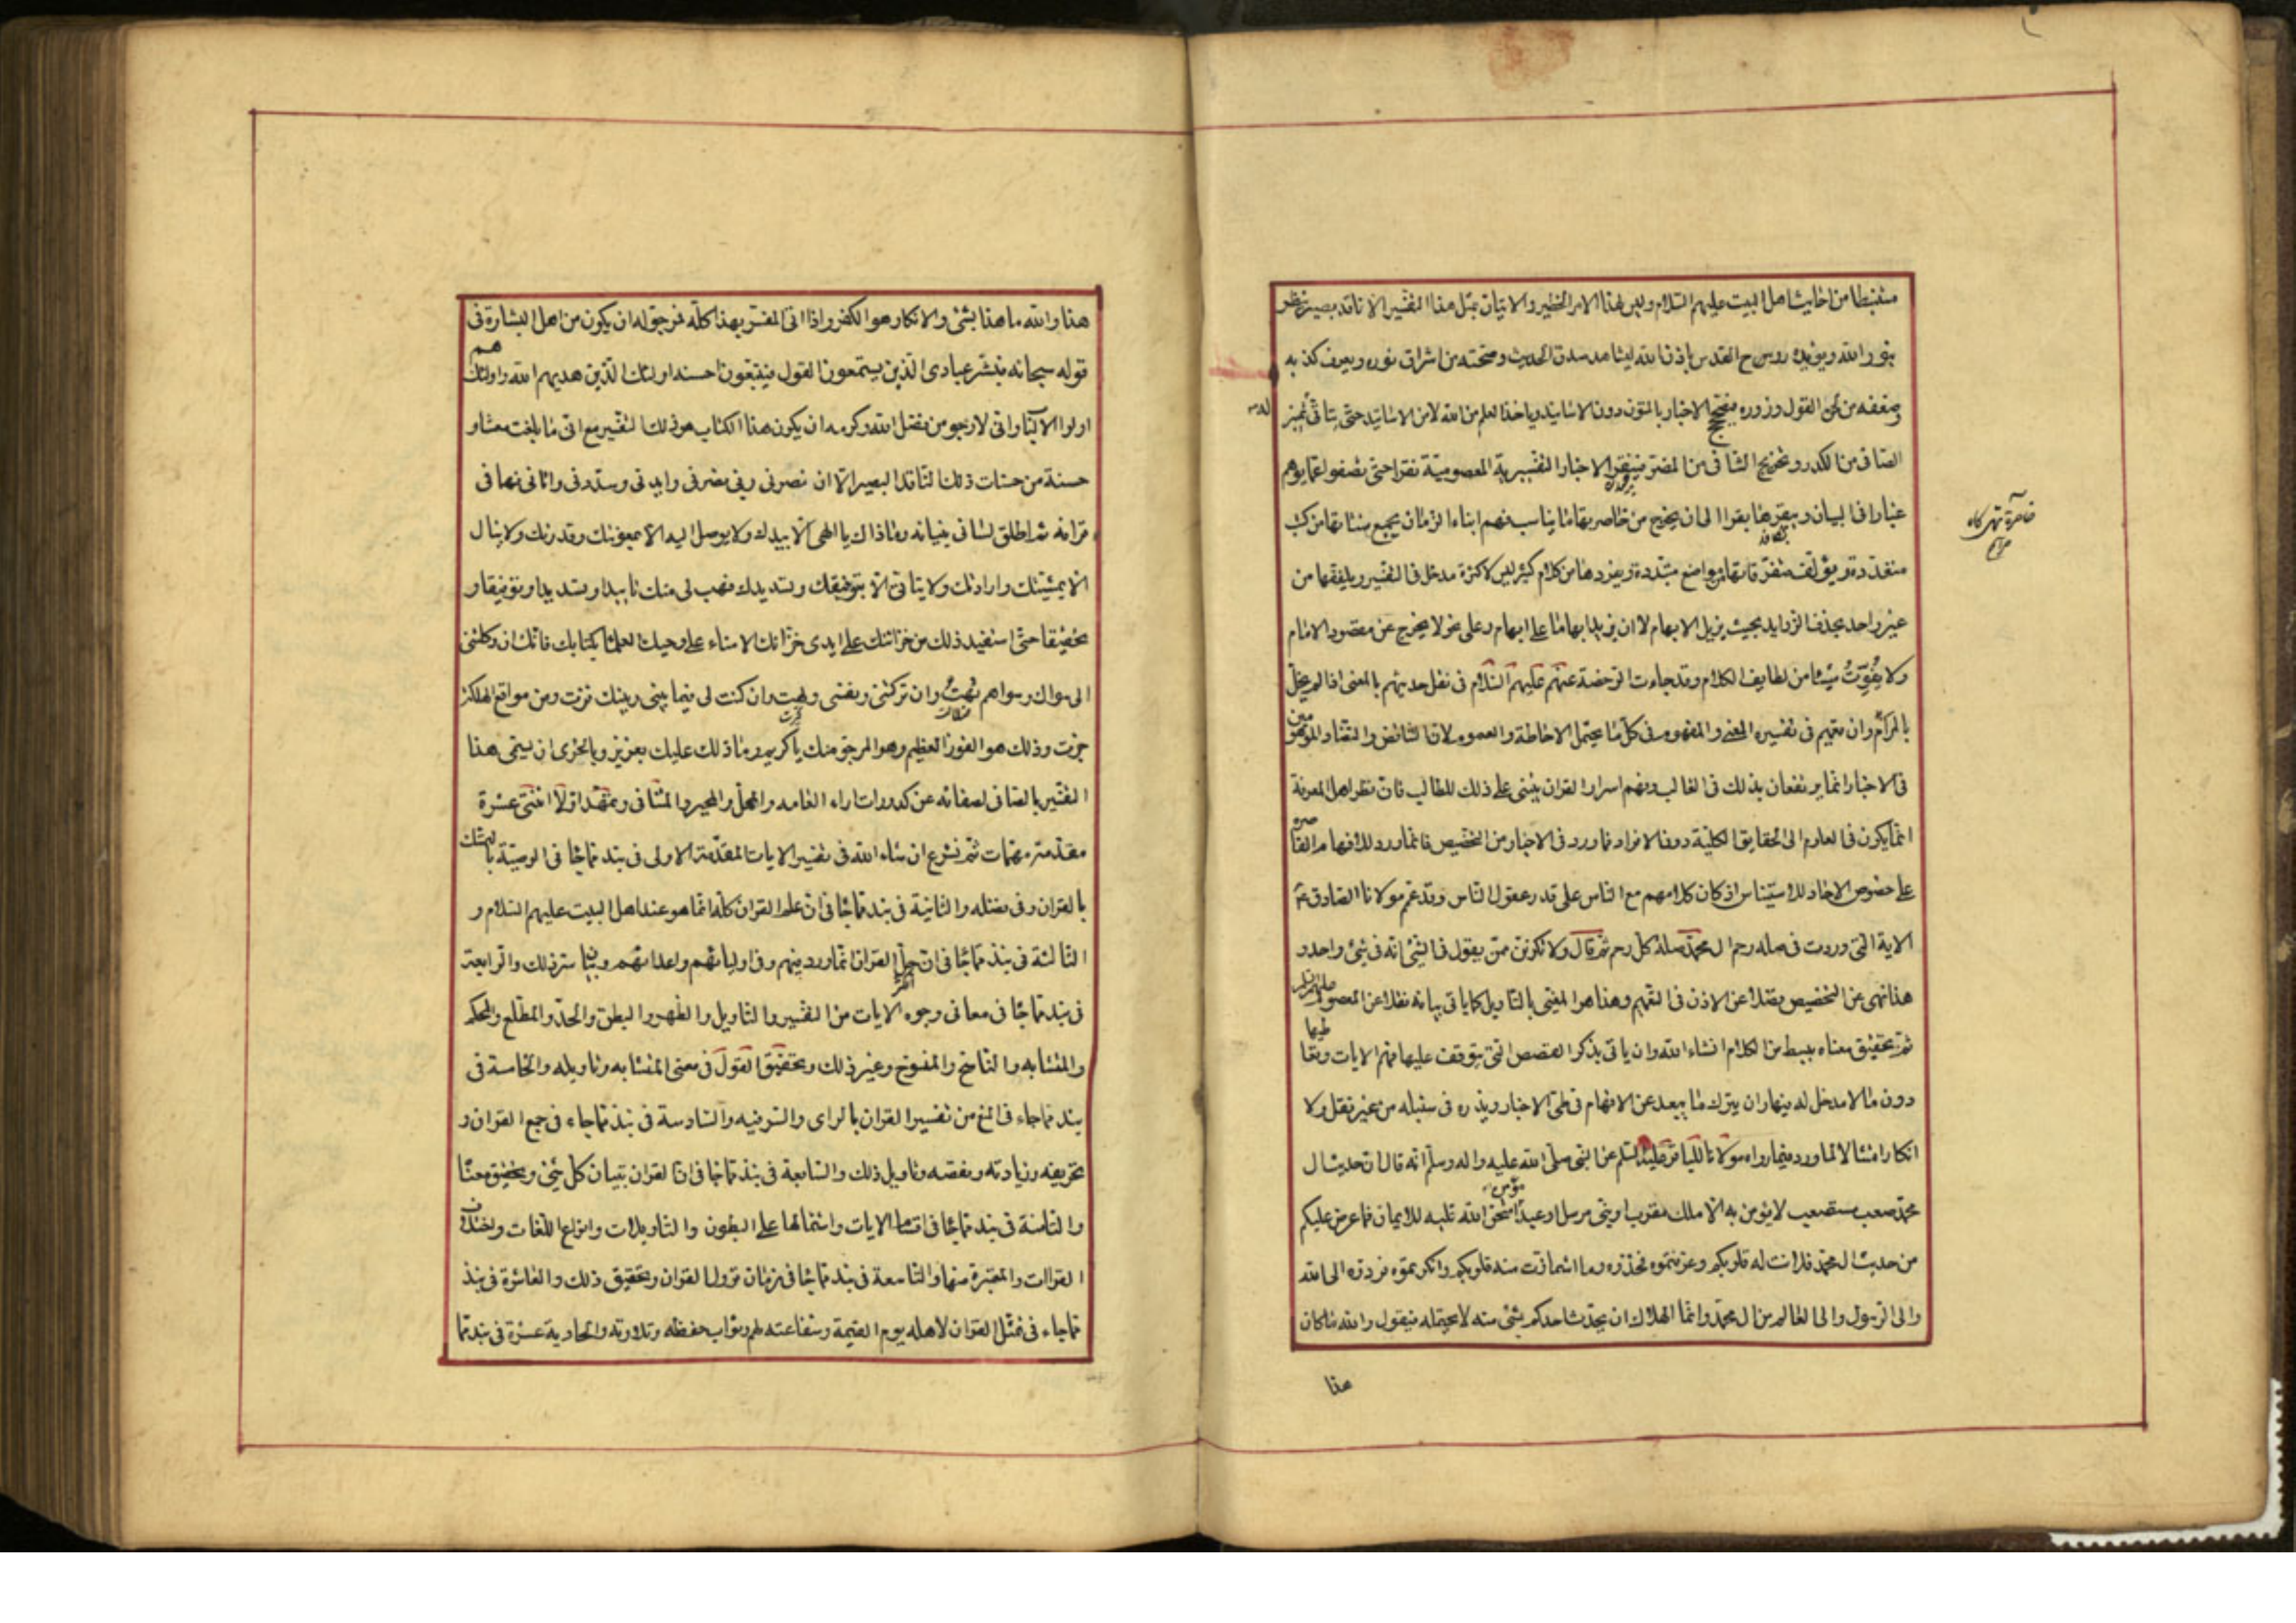 مستنبطا من احاديث اهل البيت عليهم السلام وليس لهذا الامر الخطير والاتيان بمثل هذا التفسير الا ناقد بصير ينظر
بنور الله ويؤيده روح القدس باذن الله ليشاهد صدق الحديث وصحته من اشراق نوره ويعرف كذبه
وضعفه من لحن القول وزوره فيصحح الاخبار بالمتون دون الاسانيد وياخذ العلم من الله لا من الاساتيد حتى يتاتى تميز
الصافى من الكدر وتخريج الشافى من المضر فينقر الاخبار التفسيرية المعصومية نقرا حتى تصفوا عما يوهم
غبارا فى البيان ويبقرها بقرا الى ان يخرج من خاصرتها ما يناسب فهم ابناء الزمان يجمع شتاتها من كتب
متعددة ويؤلف متفرقاتها من مواضع متبددة ويفردها من كلام كثير ليس لاكثره مدخل فى التفسير ويلفقها من
غير واحد بحذف الزوايد بحيث يزيل الابهام لا ان يزيد ابهاما على ابهام وعلى نحو لا يخرج عن مقصود الامام
ولا يفوت شيئا من لطايف الكلام وقد جاءت الرخصة عنهم عليهم السلام فى نقل حديثهم بالمعنى اذا لم يخل
بالمرام وان يتمم فى تفسيره المعنى والمفهوم فى كل ما يحتمل الاحاطة والعموم لان التناقض والتضاد الموهومين
فى الاخبار انما يرتفعان بذلك فى الغالب وفهم اسرار القران يبتنى على ذلك للطالب فان نظر اهل المعرفة
انما يكون فى العلوم الى الحقايق الكلية دون الافراد فما ورد فى الاخبار من التخصيص فانما ورد للافهام القاصره
على خصوص الاحاد للاستيناس اذ كان كلامهم مع الناس على قدر عقول الناس وقد عمم مولانا الصادق ع
الاية التى وردت فى صلة رحم ال محمد صلة كل رحم ثم قال ولا تكونن ممن يقول فى الشئ انه فى شئ واحد و
هذا نهى عن التخصيص فضلا عن الاذن فى التعميم وهذا هو المعنى بالتاويل كما ياتى بيانه نقلا عن المعصوم عليهم السلام
ثم تحقيق معناه ببسط من الكلام انشاء الله وان ياتى بذكر القصص التى يتوقف عليها فهم الايات ومتعلقاتها
دون ما لا مدخل له فيها وان يترك ما يبعد عن الافهام فى طى الاخبار ويذره فى سنبله من غير نقل ولا
انكار امتثالا لما ورد فيما رواه مولانا الباقر عليه السلام عن النبى صلى الله عليه واله وسلم انه قال ان حديث ال
محمد صعب مستصعب لا يؤمن به الا ملك مقرب او نبى مرسل او عبد مؤمن امتحن الله قلبه للايمان فما عرض عليكم
من حديث ال محمد فلانت له قلوبكم وعرفتموه فخذوه وما اشمازت منه قلوبكم وانكرتموه فردوه الى الله
والى الرسول والى العالم من ال محمد وانما الهلاك ان يحدث احدكم بشئ منه لا يحتمله فيقول والله ما كان
هذا
هذا والله ما هذا بشئ والانكار هو الكفر واذا اتى المفسر بهذا كله فنرجو له ان يكون من اهل البشارة فى
قوله سبحانه فبشر عبادى الذين يستمعون القول فيتبعون احسنه اولئك الذين هديهم الله واولئك هم
اولوا الالباب وانى لارجو من فضل الله وكرمه ان يكون هذا الكتاب هو ذلك التفسير مع انى ما بلغت معشار
حسنة من حسنات ذلك الناقد البصير الا ان نصرنى ربى نصرنى وايدنى وسددنى واتانى فهما فى
قرانه ثم اطلق لسانى ببيانه وما ذاك يا الهى الا بيدك ولا يوصل اليه الا بمعونتك وقدرتك ولا ينال
الا بمشيتك وارادتك ولا يتاتى الا بتوفيقك وتسديدك فهب لى منك تاييدا وتسديدا وتوفيقا و
تحقيقا حتى استفيد ذلك من خزائنك على ايدى خزانك الامناء على وحيك العلماء بكتابك فانك ان وكلتنى
الى سواك وسواهم تهت وان تركتنى ونفسى وهيت وان كنت لى فيما بينى وبينك فزت ومن مواقع الهلكة
جزت وذلك هو الفوز العظيم وهو المرجو منك يا كريم وما ذلك عليك بعزيز وبالحرى ان يسمى هذا
التفسير بالصافى لصفائه عن كدورات اراء العامه والممل والمحير والمتنافى ونمهد اولا اثنتى عشرة
مقدمة مهمات ثم نشرع ان شاء الله فى تفسير الايات المقدمة الاولى فى نبذ مما جاء فى الوصية بالتمسك
بالقران وفى فضله والثانية فى نبذ مما جاء فى ان علم القران كله انما هو عند اهل البيت عليهم السلام و
الثالثة فى نبذ مما جاء فى ان جل القران انما ورد فيهم وفى اوليائهم واعدائهم وبيان سر ذلك والرابعة
فى نبذ مما جاء فى معانى وجوه الايات من التفسير والتاويل والظهر والبطن والحد والمطلع والمحكم
والمتشابه والناسخ والمنسوخ وغير ذلك وتحقيق القول فى معنى المتشابه وتاويله والخامسة فى
نبذ مما جاء فى المنع من تفسير القران بالراى والسر فيه والسادسة فى نبذ مما جاء فى جمع القران و
تحريفه وزيادته ونقصه وتاويل ذلك والسابعة فى نبذ مما جاء فى ان القران تبيان كل شئ وتحقيق معناه
والثامنة فى نبذ مما جاء فى اقسام الايات واشتمالها على البطون والتاويلات وانواع اللغات واختلاف
القراات والمعتبرة منها والتاسعة فى نبذ مما جاء فى زمان نزول القران وتحقيق ذلك والعاشرة فى نبذ
مما جاء فى تمثل القران لاهله يوم القيمة وشفاعته لهم وثواب حفظه وتلاوته والحادية عشرة فى نبذ مما